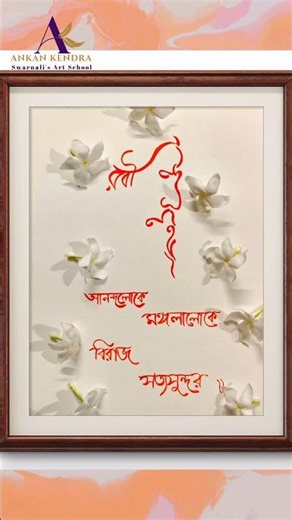 ANKAN KENDRA
Swarnali's Art School
রবী
আনন্দলোকে
মঙ্গলালোকে
বিরাজ
সত্যসুন্দর